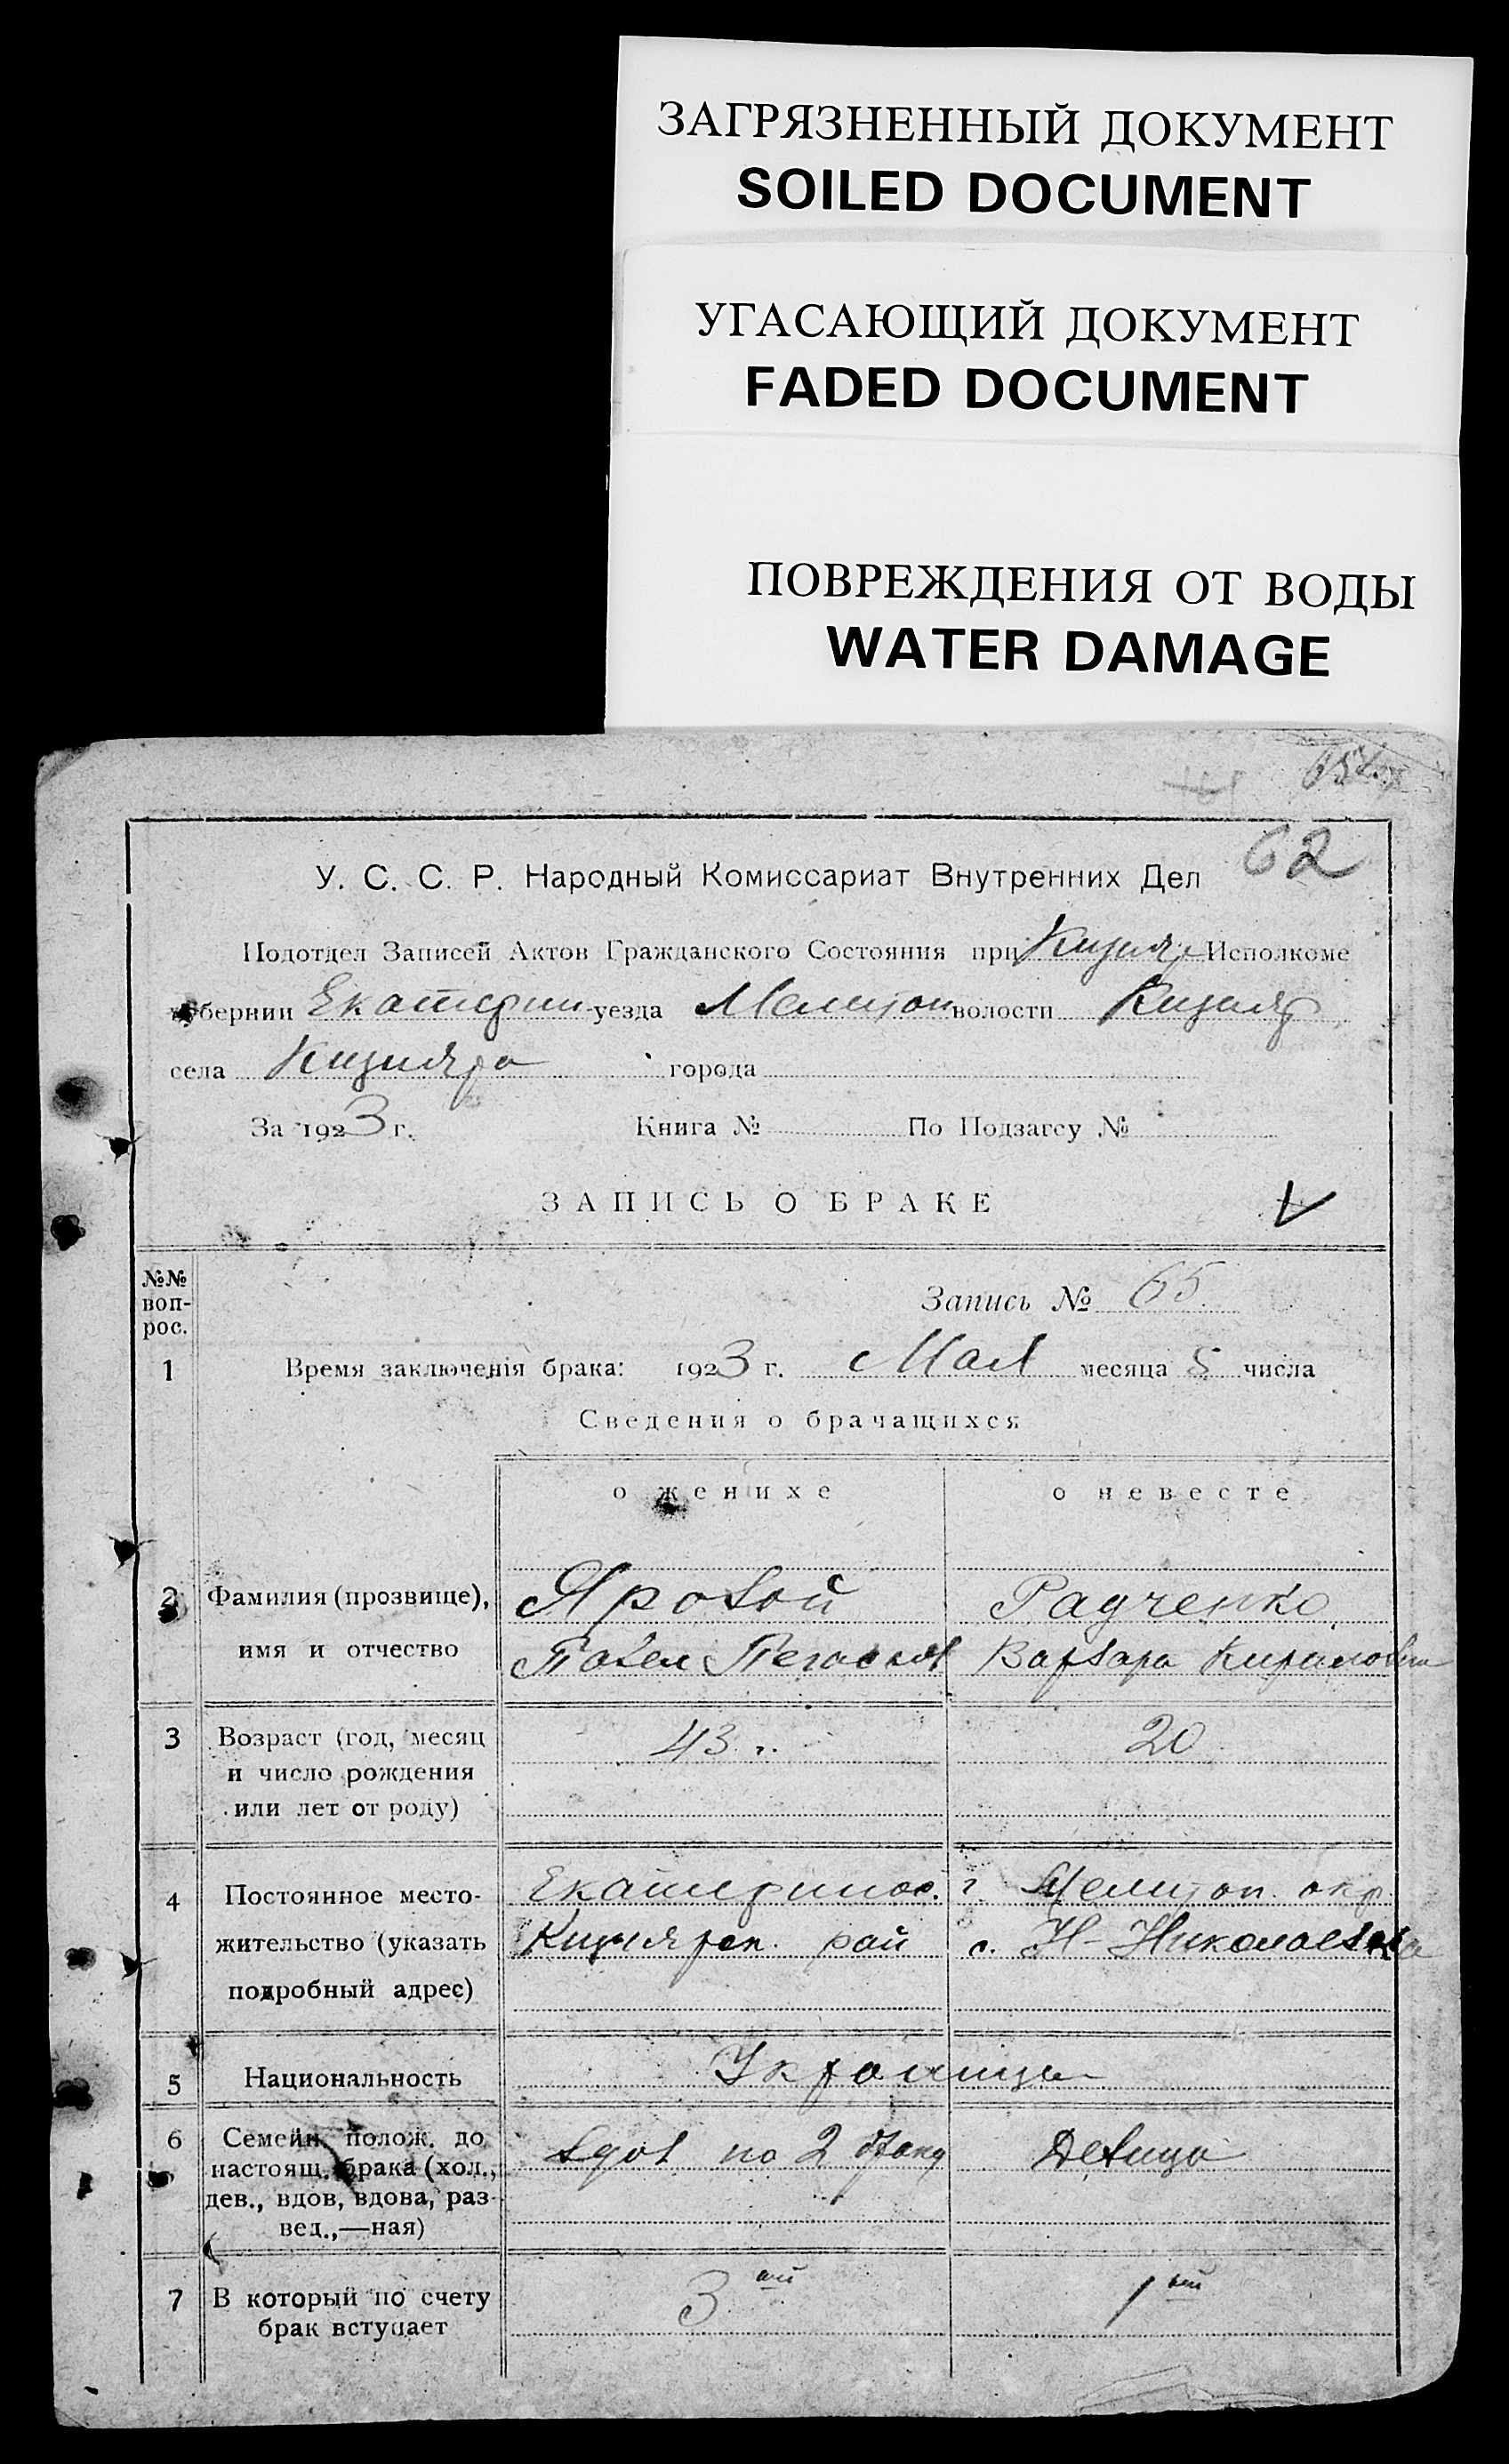 ЗАГРЯЗНЕННЫЙ ДОКУМЕНТ
SOILED DOCUMENT
УГАСАЮЩИЙ ДОКУМЕНТ
FADED DOCUMENT
ПОВРЕЖДЕНИЯ ОТ ВОДЫ
WATER DAMAGE
62
У. С. С. Р. Народный Комиссариат Внутренних Дел
Подотдел Записей Актов Гражданского Состояния при Кизияр Исполкоме
губернии Екатерин уезда Мелитоп волости Кизияр
села Кизияра города
За 1923 г. Книга № По Подзагсу №
ЗАПИСЬ О БРАКЕ
№№ воп-рос.
Запись № 65
1 Время заключенія брака: 1923 г. Мая месяца 5 числа
Сведения о брачащихся
о женихе о невесте
2 Фамилия (прозвище), Яровой Радченко
имя и отчество Павел Варвара
3 Возраст (год, месяц 43 г. 20
и число рождения
или лет от роду)
4 Постоянное место- Екатеринос. г. Мелитоп. окр.
жительство (указать Кизиярск. рай с. Н-Николаевка
подробный адрес)
5 Национальность Украинцы
6 Семейн. полож. до вдов по 2 браку Девица
настоящ. брака (хол.,
дев., вдов, вдова, раз-
вед.,—ная)
7 В который по счету 3ий 1ый
брак вступает